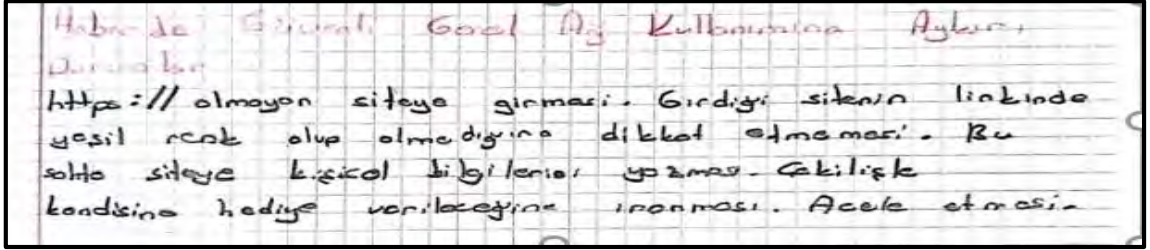 Haberde Güvenli Genel Ağ Kullanımına Aykırı
Durumlar
https:// olmayan siteye girmesi. Girdiği sitenin linkinde
yeşil renk olup olmadığına dikkat etmemesi. Bu
sahte siteye kişisel bilgilerini yazması. Çekilişle
kendisine hediye verileceğine inanması. Acele etmesi.